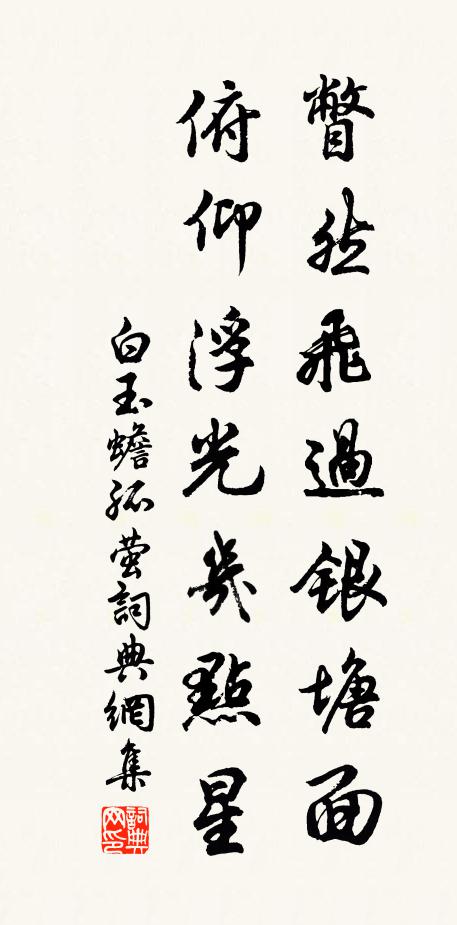 瞥然飛過銀塘面
俯仰浮光幾點星
白玉蟾孤螢詞典網集
詞典网印